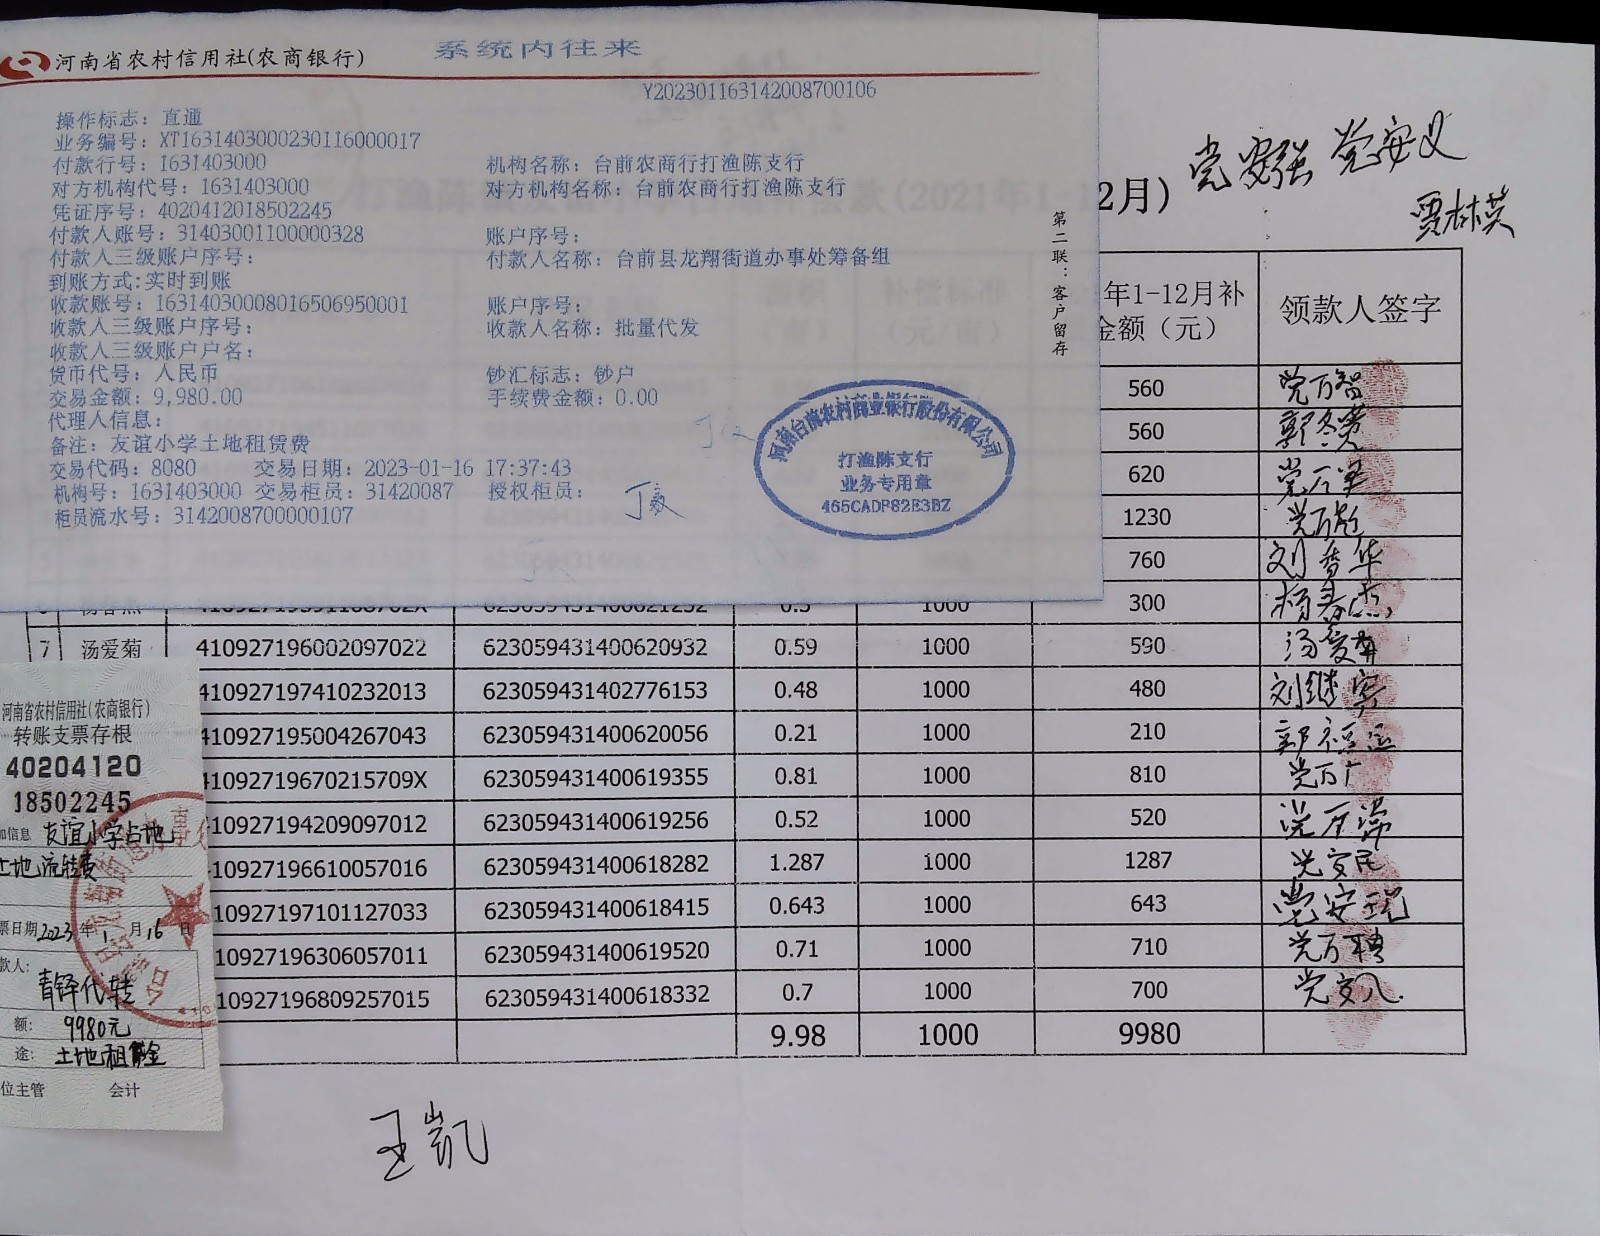 河南省农村信用社(农商银行)
系统内往来
Y202301163142008700106
操作标志：直通
业务编号：XT1631403000230116000017
付款行号：1631403000 机构名称：台前农商行打渔陈支行
对方机构代号：1631403000 对方机构名称：台前农商行打渔陈支行
凭证序号：4020412018502245
付款人账号：31403001100000328 账户序号：
付款人三级账户序号： 付款人名称：台前县龙翔街道办事处筹备组
到账方式:实时到账
收款账号：16314030008016506950001 账户序号：
收款人三级账户序号： 收款人名称：批量代发
收款人三级账户户名：
货币代号：人民币 钞汇标志：钞户
交易金额：9,980.00 手续费金额：0.00
代理人信息：
备注：友谊小学土地租赁费
交易代码：8080 交易日期：2023-01-16 17:37:43
机构号：1631403000 交易柜员：31420087 授权柜员：
柜员流水号：3142008700000107
第二联：客户留存
河南台前农村商业银行股份有限公司
打渔陈支行
业务专用章
465CADF82E3BZ
2月)
党安强 党安义
贾林英
年1-12月补 领款人签字
金额（元）
560 党万智
560
620
1230 党万彪
760 刘香华
300 杨春杰
7 汤爱菊 410927196002097022 623059431400620932 0.59 1000 590 汤爱菊
410927197410232013 623059431402776153 0.48 1000 480 刘继宾
410927195004267043 623059431400620056 0.21 1000 210
41092719670215709X 623059431400619355 0.81 1000 810 党万广
10927194209097012 623059431400619256 0.52 1000 520
10927196610057016 623059431400618282 1.287 1000 1287 党安民
10927197101127033 623059431400618415 0.643 1000 643
10927196306057011 623059431400619520 0.71 1000 710
10927196809257015 623059431400618332 0.7 1000 700 党安八
9.98 1000 9980
河南省农村信用社(农商银行)
转账支票存根
40204120
18502245
加信息 友谊小学占地
土地流转费
票日期2023年1月16日
款人:
额: 9980元
途: 土地租金
位主管 会计
王凯